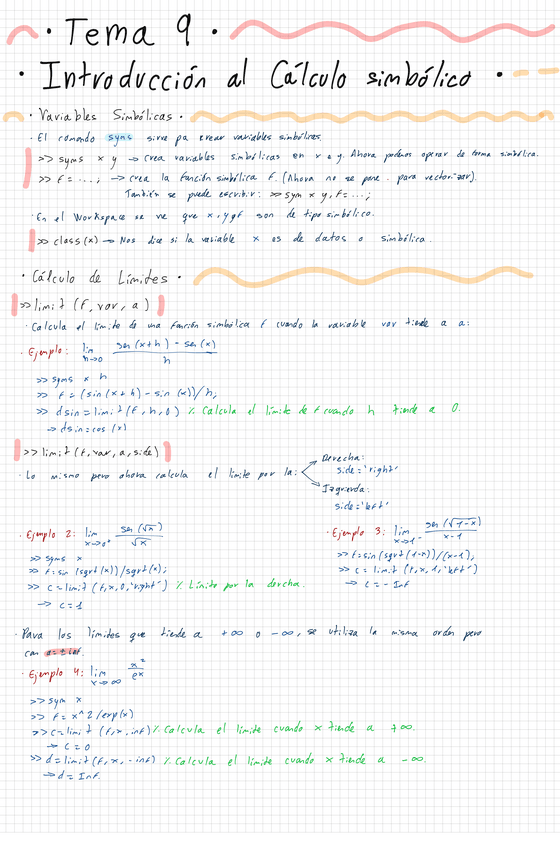 · Tema 9 ·
· Introducción al Cálculo simbólico ·
· Variables Simbólicas ·
· El comando syms sirve pa crear variables simbólicas.
>> syms x y → crea variables simbólicas en x e y. Ahora podemos operar de forma simbólica.
>> f = ...; → crea la función simbólica f. (Ahora no se pone . para vectorizar).
También se puede escribir: >> sym x y, f = ...;
· En el Workspace se ve que x, y y f son de tipo simbólico.
>> class(x) → Nos dice si la variable x es de datos o simbólica.
· Cálculo de Límites ·
>> limit (f, var, a)
· Calcula el límite de una función simbólica f cuando la variable var tiende a a:
· Ejemplo: lim h→0 sen (x+h) - sen (x) / h
>> syms x h
>> f = (sin (x+h) - sin (x))/h;
>> dsin = limit (f, h, 0) % Calcula el límite de f cuando h tiende a 0.
→ dsin = cos (x)
>> limit (f, var, a, side)
· Lo mismo pero ahora calcula el límite por la:
Derecha:
side = 'right'
Izquierda:
side = 'left'
· Ejemplo 2: lim x→0⁺ sen (√x) / √x
>> syms x
>> f = sin (sqrt (x)) / sqrt (x);
>> c = limit (f, x, 0, 'right') % Límite por la dercha.
→ c = 1
· Ejemplo 3: lim x→1⁻ sen (√1-x) / x-1
>> f = sin (sqrt (1-x)) / (x-1);
>> c = limit (f, x, 1, 'left')
→ c = - Inf
· Para los límites que tiende a +∞ o -∞, se utiliza la misma orden pero
con a = ± inf.
· Ejemplo 4: lim x→∞ x² / eˣ
>> sym x
>> f = x^2/exp(x)
>> c = limit (f, x, inf) % Calcula el límite cuando x tiende a +∞.
→ c = 0
>> d = limit (f, x, -inf) % Calcula el límite cuando x tiende a -∞.
→ d = Inf.